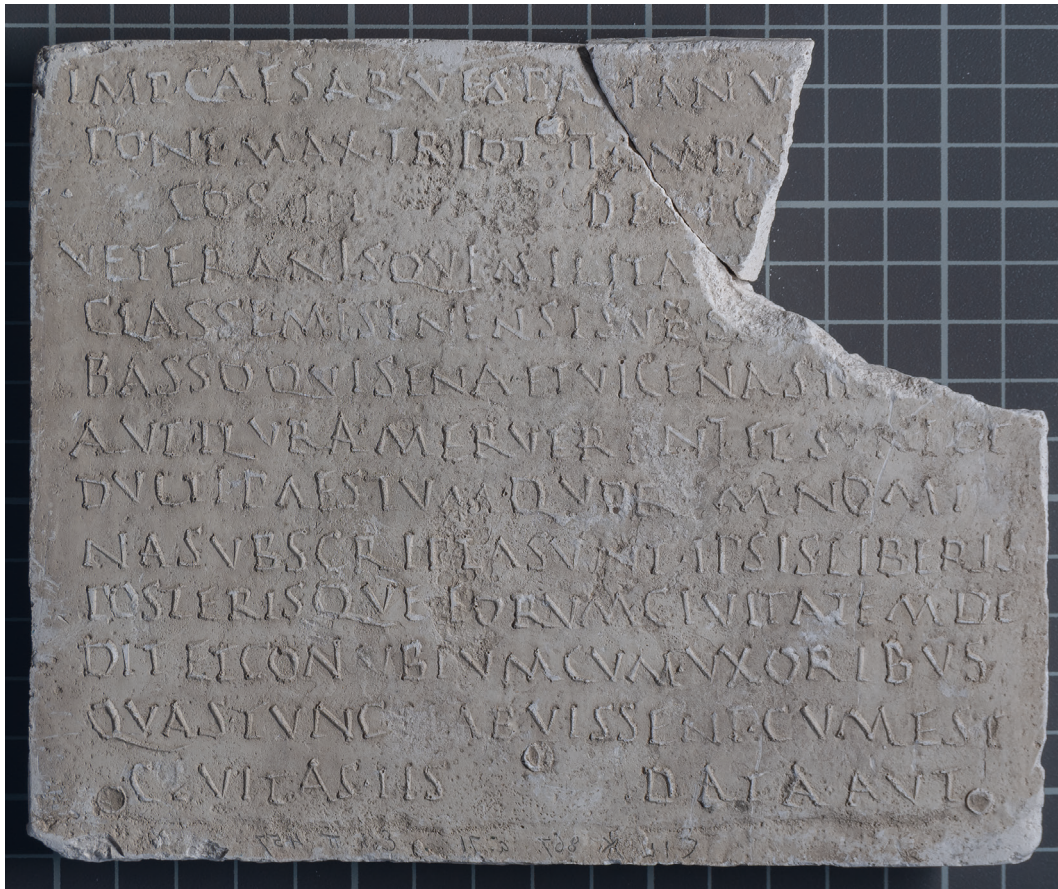 IMP·CAESAR·VESPASIANV
PONT·MAX·TR·POT· P P
COS·III DESIG
VETERANIS QVI MILITA
CLASSE MISENENSI SVB S
BASSO QVI SENA·ET VICENA STI
AVT·PLVRA MERVERVNT ET·SVNT DE
DVCTI PAESTVM·QVORVM·NOMI
NA SVBSCRIPTA SVNT·IPSIS LIBERIS
POSTERISQVE EORVM·CIVITATEM DE
DIT ET CONVBIVM CVM VXORIBVS
QVAS TVNC HABVISSENT·CVM EST
CIVITAS IIS DATA·AVT